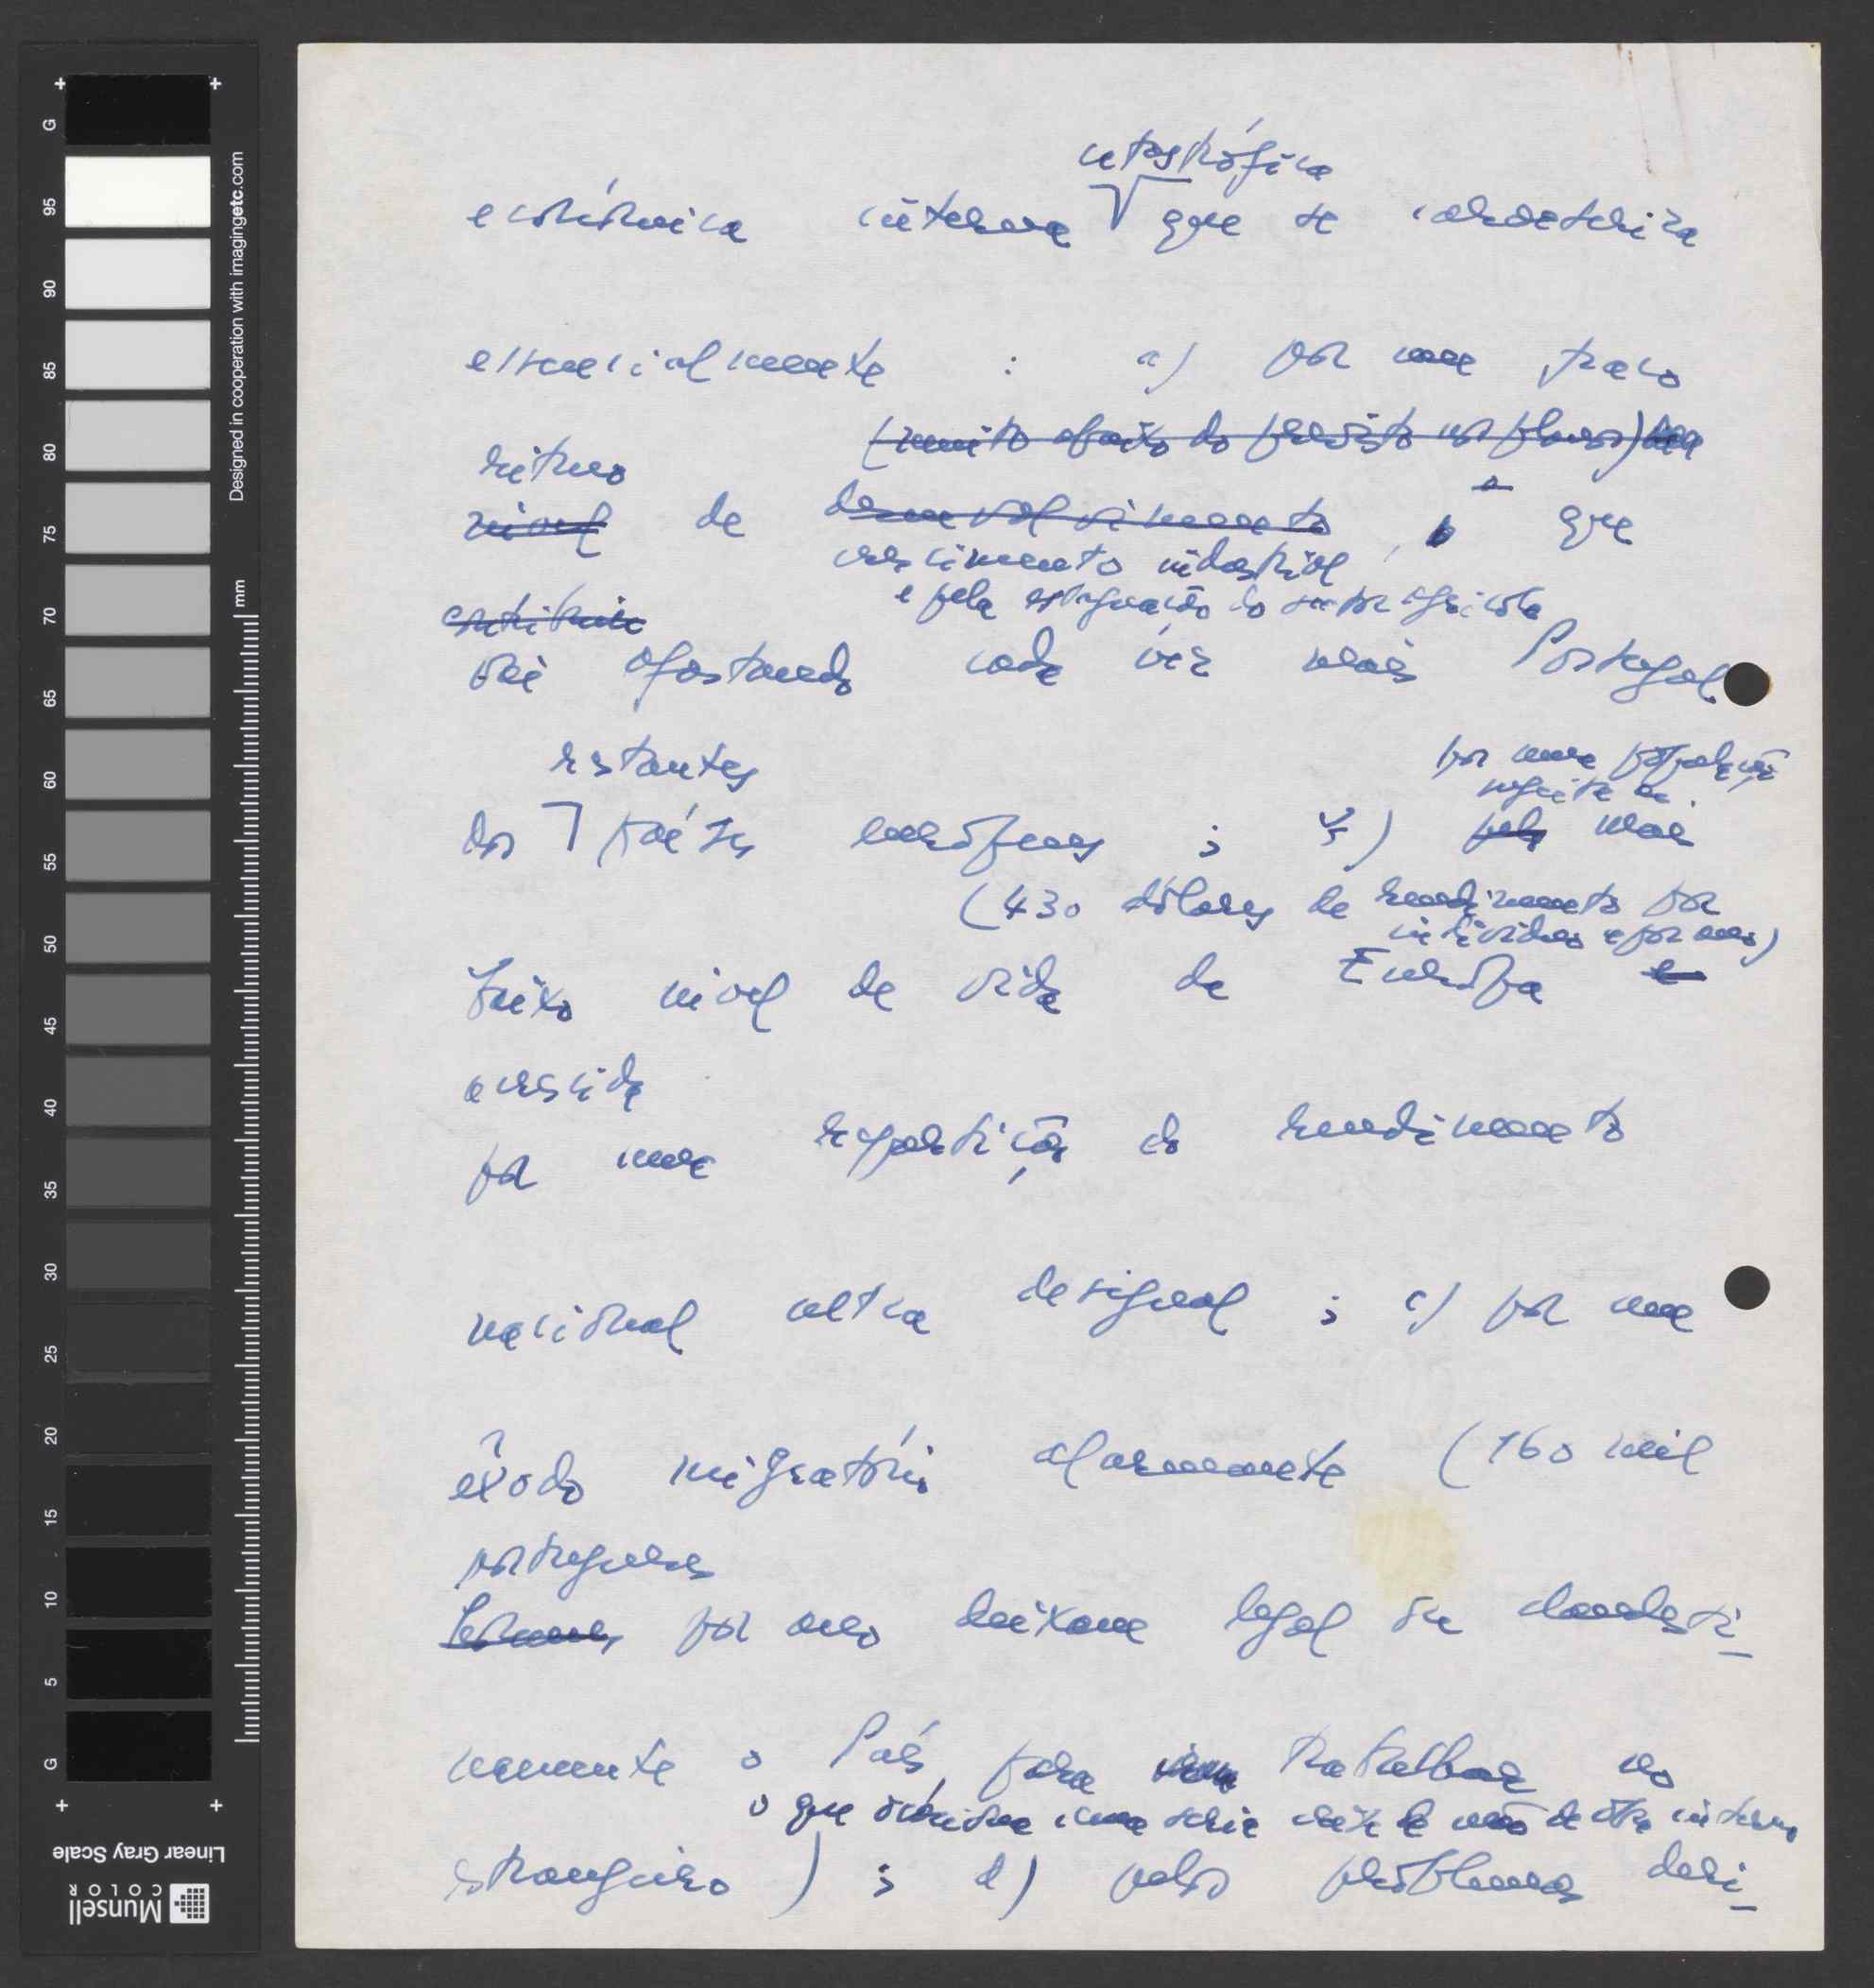 catastrófica
económica interna que se caracteriza
essencialmente : a) por um fraco
(muito abaixo do previsto nos planos)
ritmo
nível de desenvolvimento, o que
crescimento industrial
e pela estagnação do sector agrícola
contribui
vai afastando cada vez mais Portugal
restantes
por uma população
sujeita ao
dos países europeus ; b) pelo mais
(430 dólares de rendimento por
indivíduo e por ano)
baixo nível de vida da Europa e
acrescida
por uma repartição do rendimento
nacional desigual ; c) por um
êxodo migratório alarmante (160 mil
portugueses
homens por ano deixam legal ou clandesti-
namente o País para trabalhar no
o que origina uma séria crise de mão de obra interna
estrangeiro) ; d) pelos problemas deri-
Designed in cooperation with imagingetc.com
mm
G
95
90
85
80
75
70
65
60
55
50
45
40
35
30
25
20
15
10
5
G
Linear Gray Scale
Munsell
COLOR